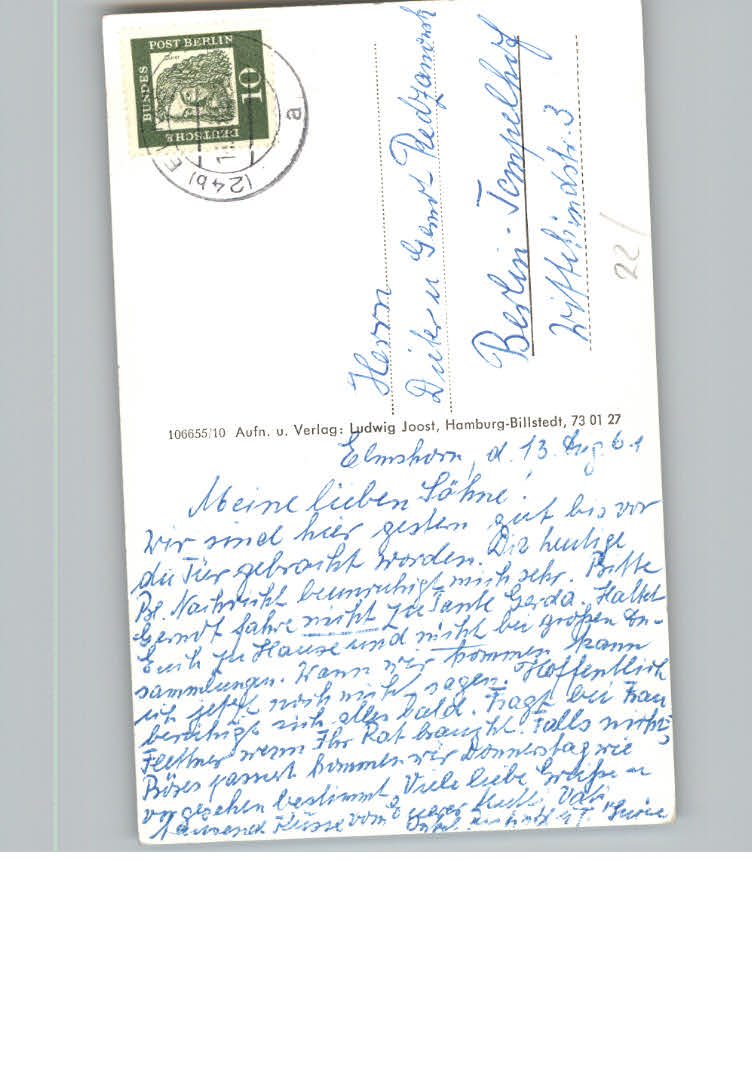 DEUTSCHE BUNDESPOST BERLIN
10
(24b)
a
Herrn
Dieter u Gernot
Berlin-Tempelhof
Wittekindstr. 3
22/
106655/10 Aufn. u. Verlag: Ludwig Joost, Hamburg-Billstedt, 73 01 27
Elmshorn, d. 13. Aug. 61
Meine lieben Söhne!
Wir sind hier gestern gut bis vor
die Tür gebracht worden. Die heutige
Be. Nachricht beunruhigt mich sehr. Bitte
Gernot fahre nicht zu Tante Gerda. Haltet
Euch zu Hause und nicht bei großen An-
sammlungen. Wann wir kommen kann
ich jetzt noch nicht sagen. Hoffentlich
beruhigt sich alles bald. Fragt bei Frau
wenn Ihr Rat braucht. Falls nichts
Böses passiert kommen wir Donnerstag wie
vorgesehen bestimmt. Viele liebe Grüße u
tausend Küsse von Eurer Mutti